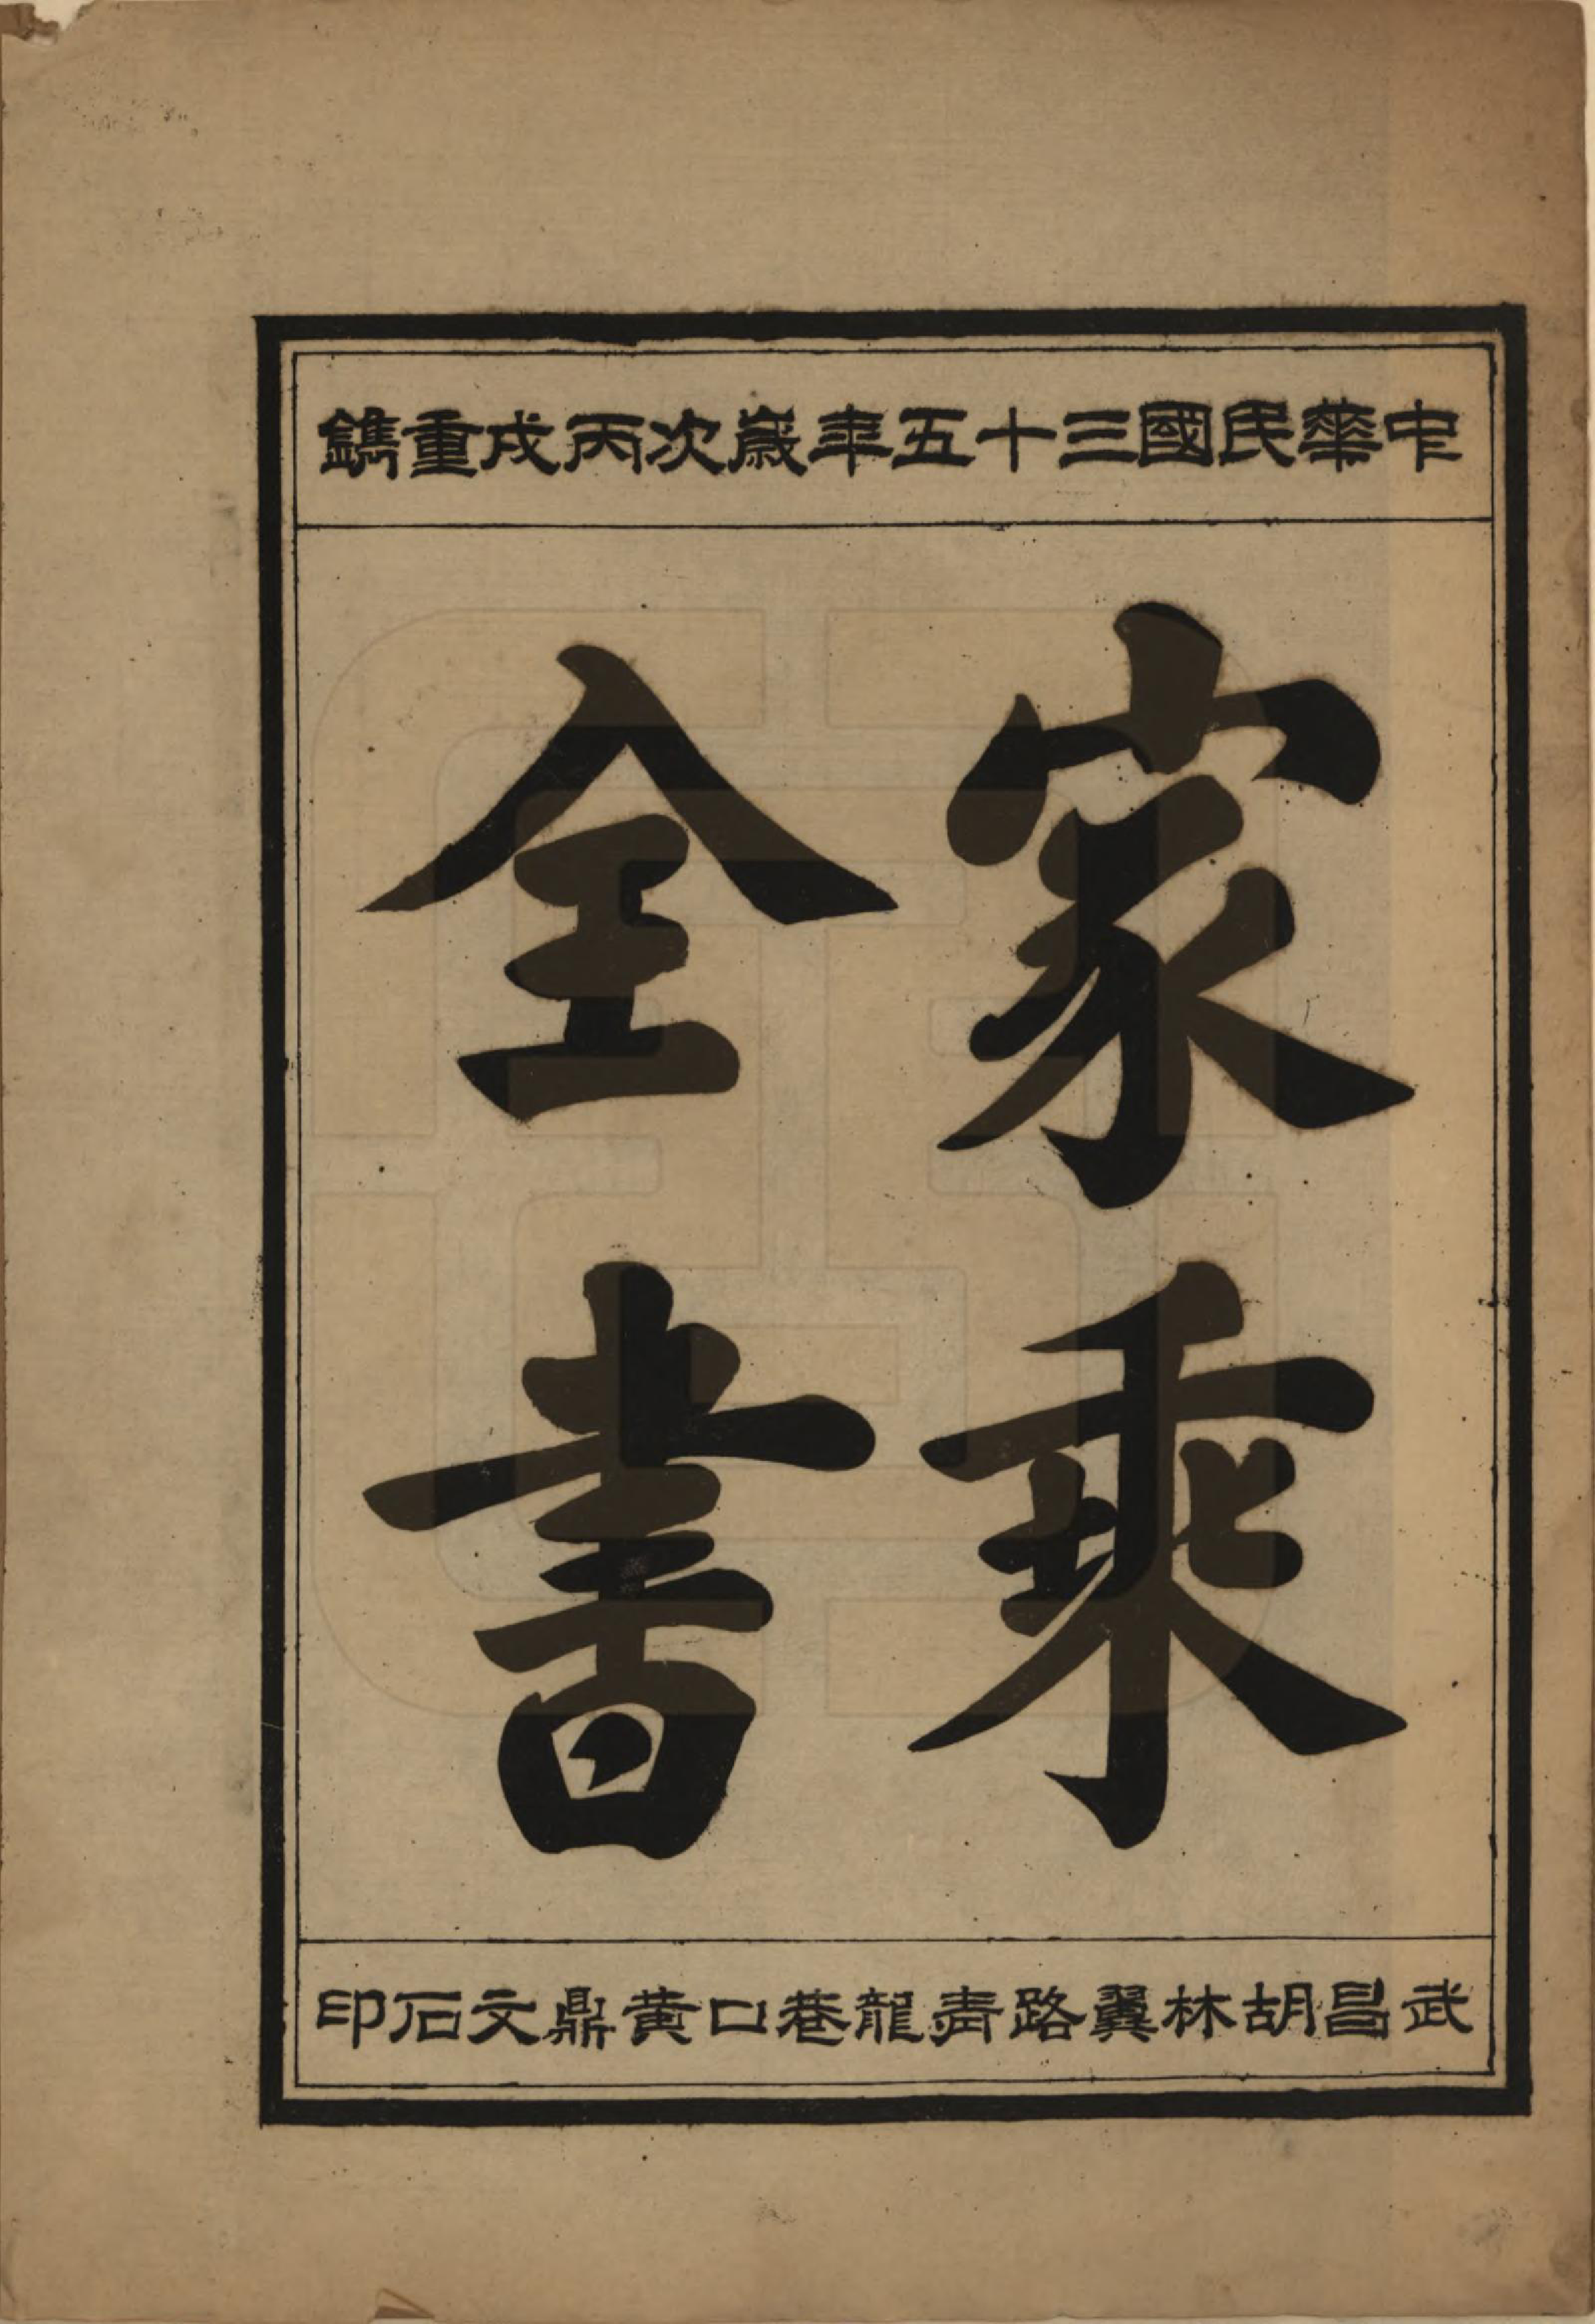 中華民國三十五年歲次丙戌重鐫
家乘
全書
武昌胡林翼路青龍巷口黄鼎文石印